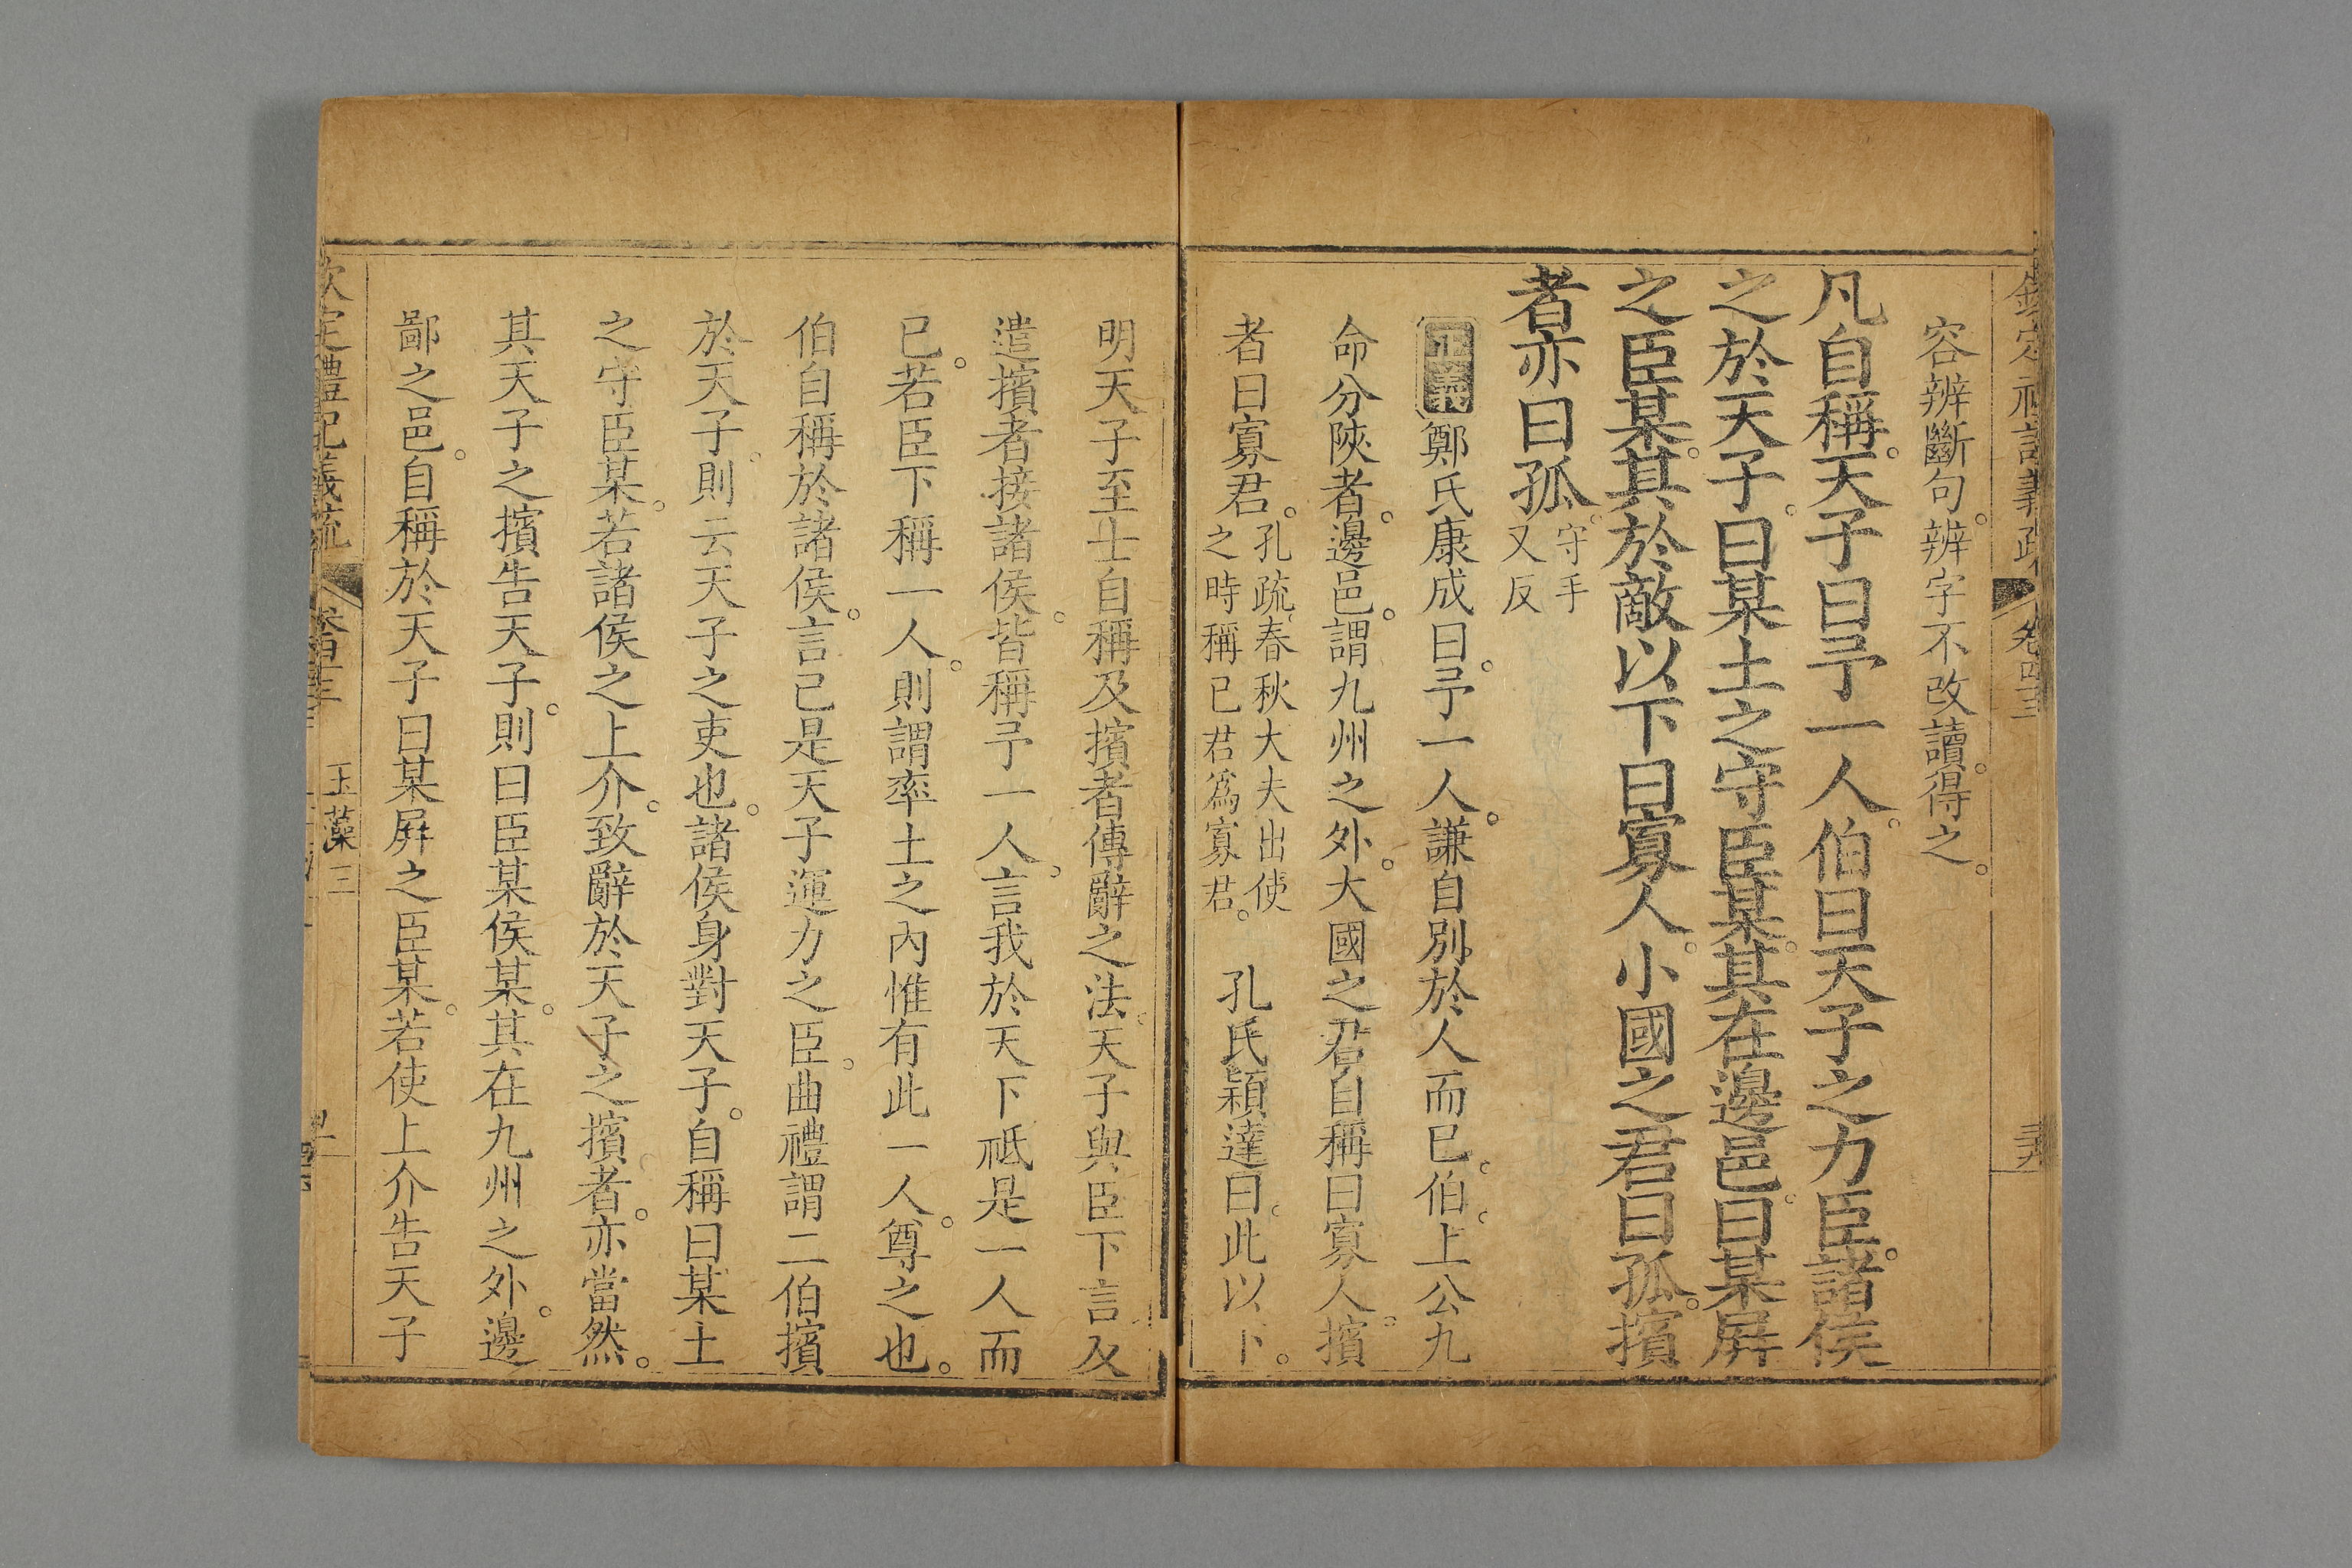 容辨斷句。辨字不改讀。得之。
凡自稱。天子曰予一人。伯曰天子之力臣。諸侯
之於天子。曰某土之守臣某。其在邊邑。曰某屏
之臣某。其於敵以下曰寡人。小國之君曰孤。擯
者亦曰孤。守手
又反
正義鄭氏康成曰。予一人。謙自別於人而已。伯。上公九
命分陜者。邊邑。謂九州之外。大國之君自稱曰寡人。擯
者曰寡君。孔疏。春秋大夫出使
之時稱已君爲寡君。
孔氏穎達曰。此以下。
明天子至士自稱及擯者傳辭之法。天子與臣下言及
遣擯者接諸侯。皆稱予一人。言我於天下祗是一人而
已。若臣下稱一人。則謂率土之內惟有此一人。尊之也。
伯自稱於諸侯。言己是天子運力之臣。曲禮謂二伯擯
於天子。則云天子之吏也。諸侯身對天子。自稱曰某土
之守臣某。若諸侯之上介。致辭於天子之擯者。亦當然。
其天子之擯告天子。則曰臣某侯某。其在九州之外。邊
鄙之邑。自稱於天子曰某屏之臣某。若使上介告天子
欽定禮記義疏
玉藻三